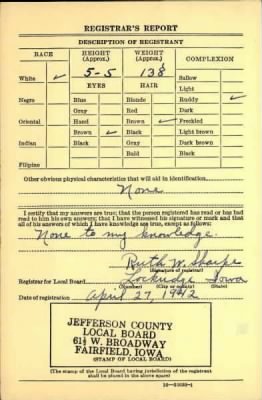 REGISTRAR'S REPORT
DESCRIPTION OF REGISTRANT
RACE HEIGHT (Approx.) WEIGHT (Approx.) COMPLEXION
White ✓ 5-5 138 Sallow
EYES HAIR Light
Negro Blue Blonde Ruddy ✓
Gray Red Dark
Oriental Hazel Brown ✓ Freckled
Brown ✓ Black Light brown
Indian Black Gray Dark brown
Bald Black
Filipino
Other obvious physical characteristics that will aid in identification
None
I certify that my answers are true; that the person registered has read or has had
read to him his own answers; that I have witnessed his signature or mark and that
all of his answers of which I have knowledge are true, except as follows:
None to my knowledge
Ruth W. Sharpe
(Signature of registrar)
Registrar for Local Board Lockridge Iowa
(Number) (City or county) (State)
Date of registration April 27, 1942
JEFFERSON COUNTY
LOCAL BOARD
61½ W. BROADWAY
FAIRFIELD, IOWA
(STAMP OF LOCAL BOARD)
(The stamp of the Local Board having jurisdiction of the registrant
shall be placed in the above space.)